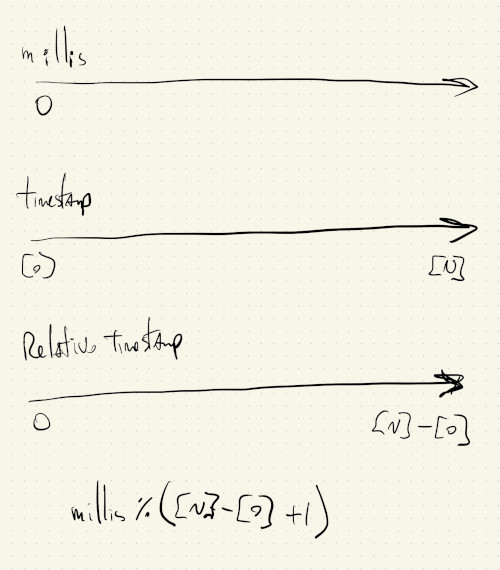 millis
0
timestamp
[0] [N]
Relative timestamp
0 [N]-[0]
millis % ([N]-[0] +1)